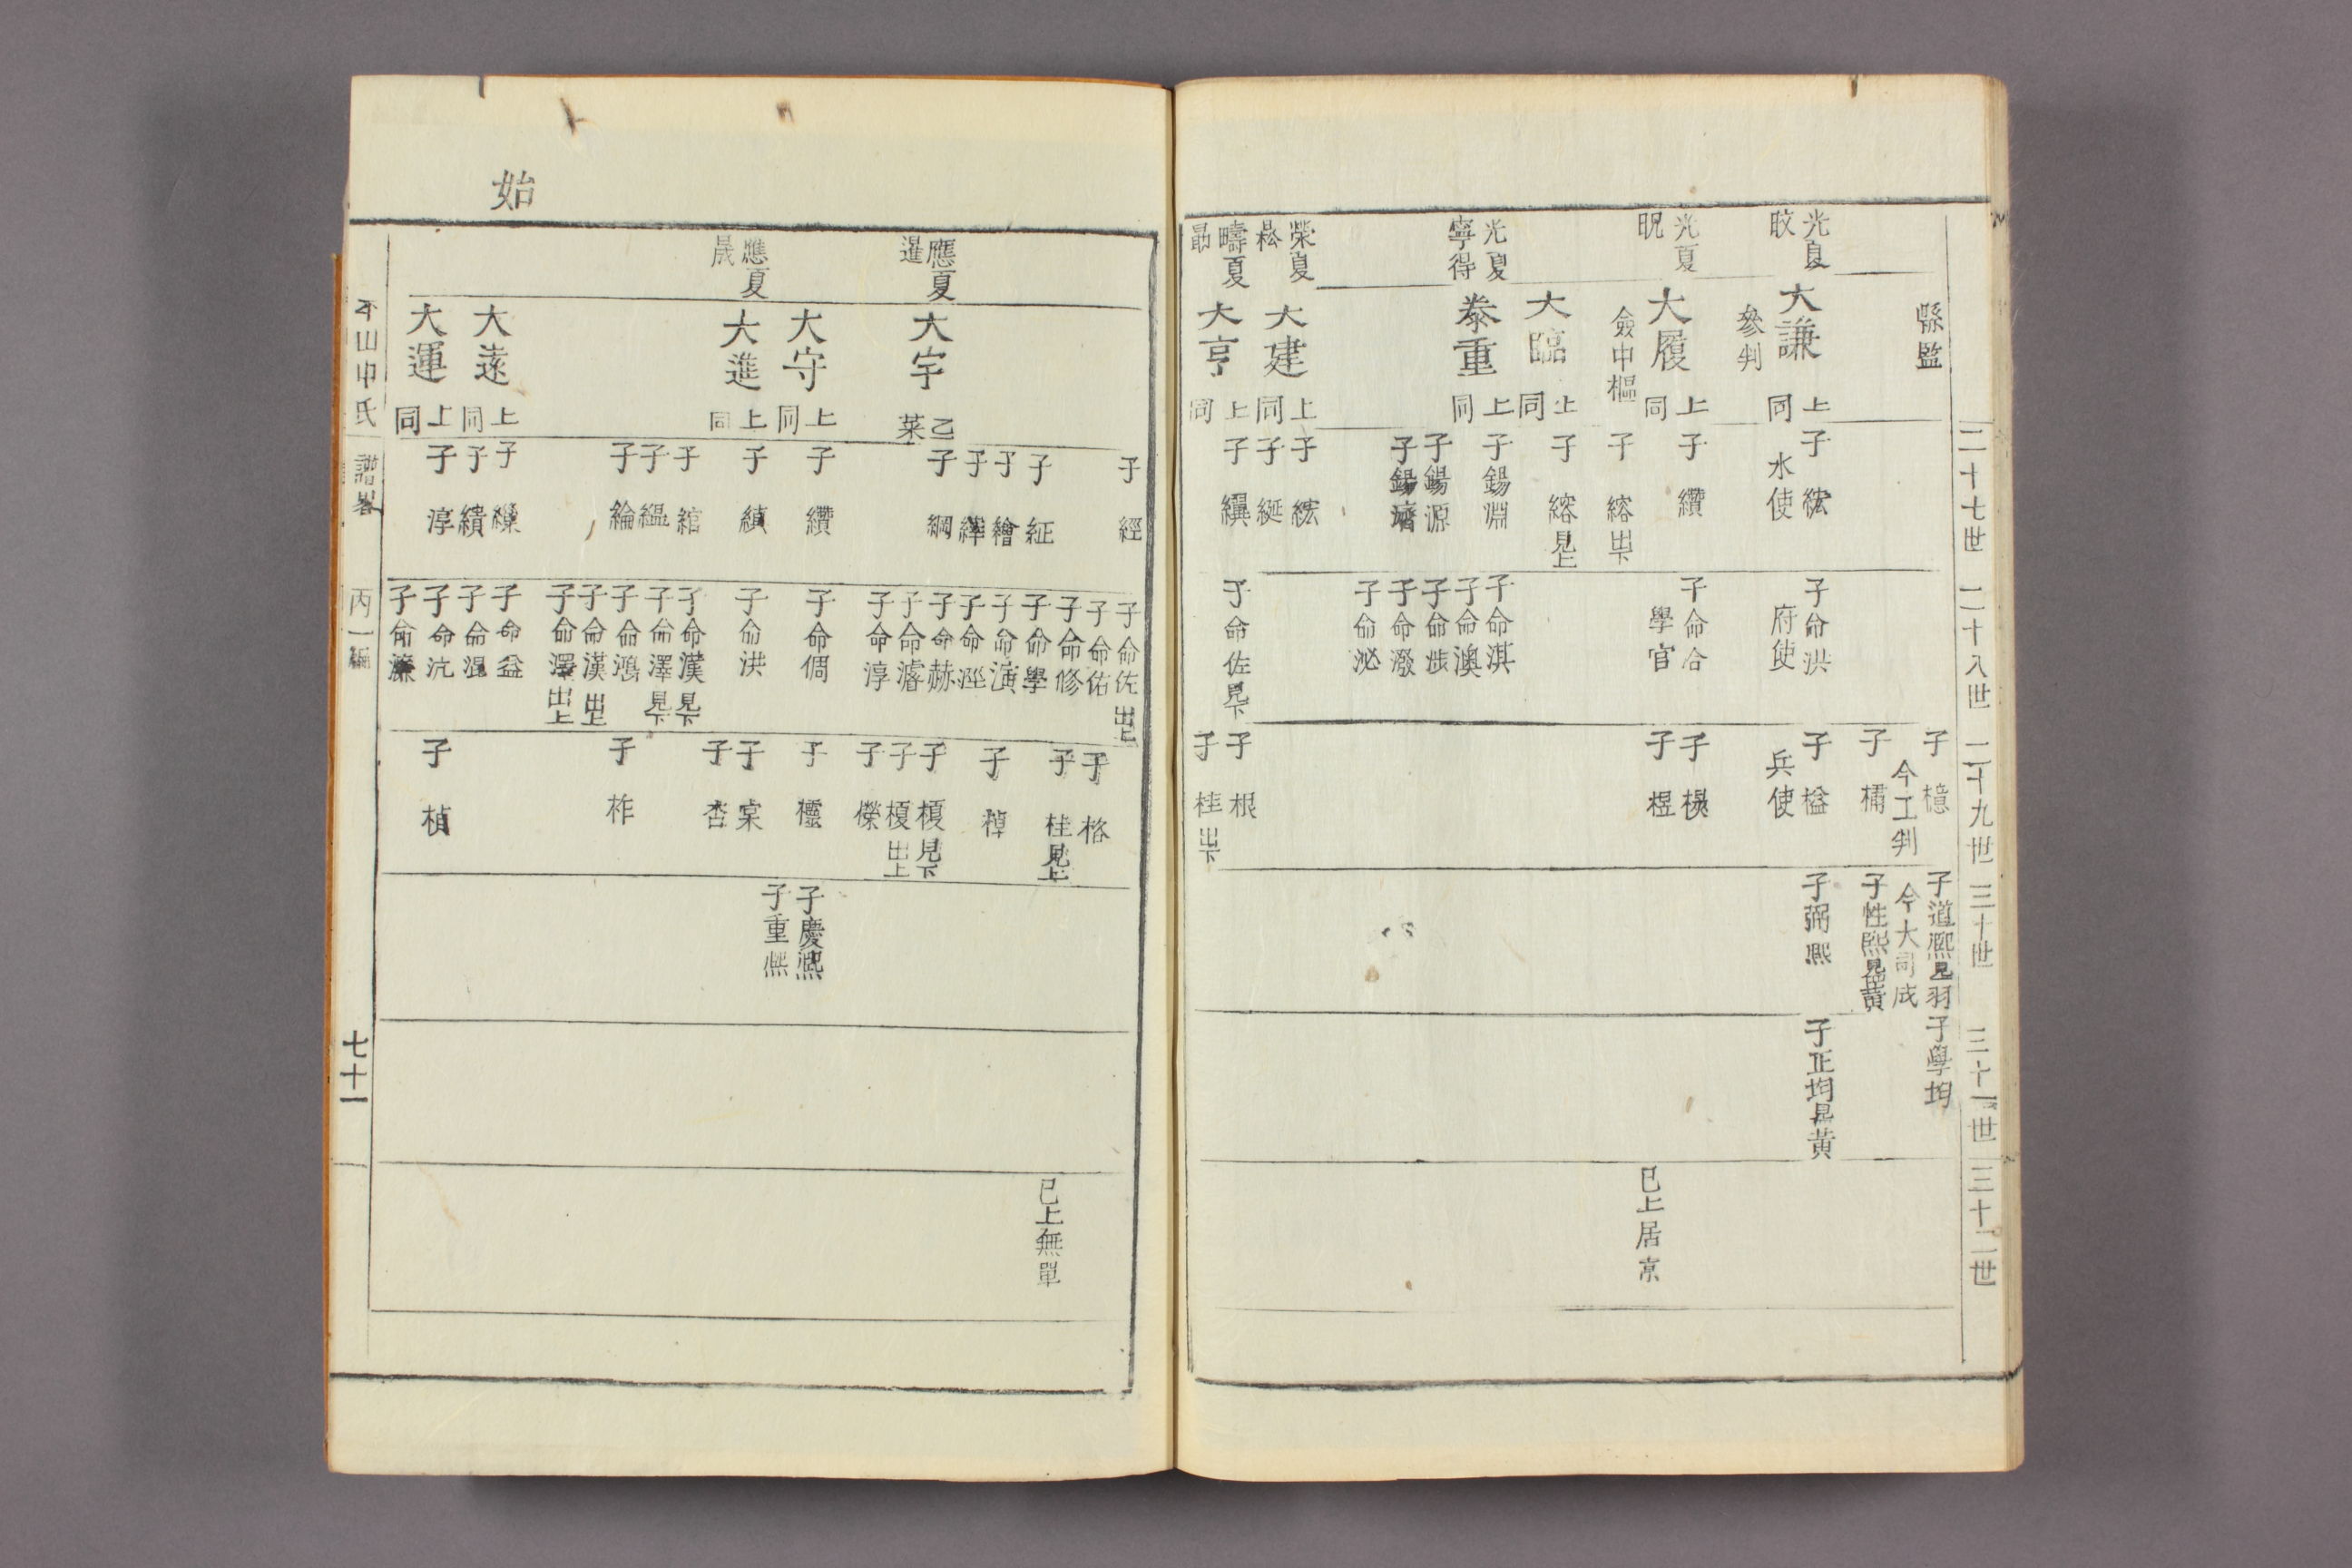 二十七世
二十八世
二十九世
三十世
三十一世
三十二世
縣監
光夏
旼
大謙
參判
上同
光夏
晛
大履
僉中樞
上同
大臨
上同
光夏
寧得
泰重
上同
榮夏
大建
上同
疇夏
大亨
上同
子 絃
水使
子 纘
子 綹 出下
子 綹 見上
子錫淵
子錫源
子錫濟
子 絃
子 綖
子 縝
子命洪
府使
子命合
學官
子命淇
子命澳
子命涉
子命潑
子命泌
子命佐 見下
子 檍
今工判
子 橚
子 榏
兵使
子
子 榅
子 根
子 桂 出下
子道熙 見羽
今大司成
子性熙 見黃
子弼熙
子學均
子正均 見黃
已上居京
應夏
暹
大宇
乙
菜
大守
上同
應夏
晟
大進
上同
大遂
上同
大運
上同
子 經
子 紝
子 繪
子 縪
子 綱
子 纘
子 縝
子 綰
子 縕
子 綸
子
子 績
子 淳
子命佐 出上
子命佑
子命修
子命學
子命演
子命涇
子命赫
子命濬
子命淳
子命倜
子命洪
子命漢 見下
子命澤 見下
子命鴻
子命漢 出上
子命澤 出上
子命益
子命混
子命沆
子命濂
子 格
子 桂 見上
子 梈
子 榎 見下
子 榎 出上
子 櫟
子 欞
子 棠
子 杏
子 柞
子 楨
子慶熙
子重熙
已上無單
始
平山申氏 譜畧 丙一編 七十一